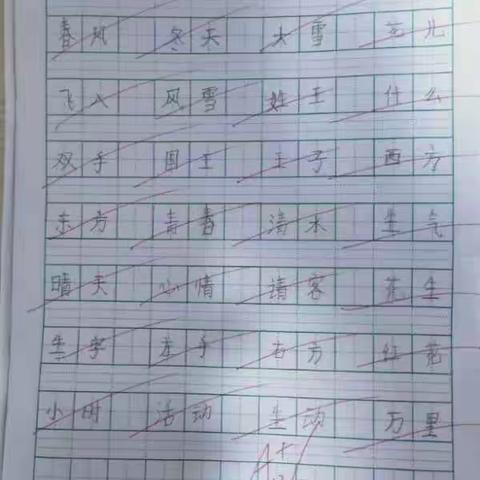 春风 冬天 大雪 花儿
飞入 风雪 姓王 什么
双手 国王 王子 西方
东方 青春 清水 生气
晴天 心情 请客 花生
生字 左手 右方 红花
小时 活动 生动 万里
A+